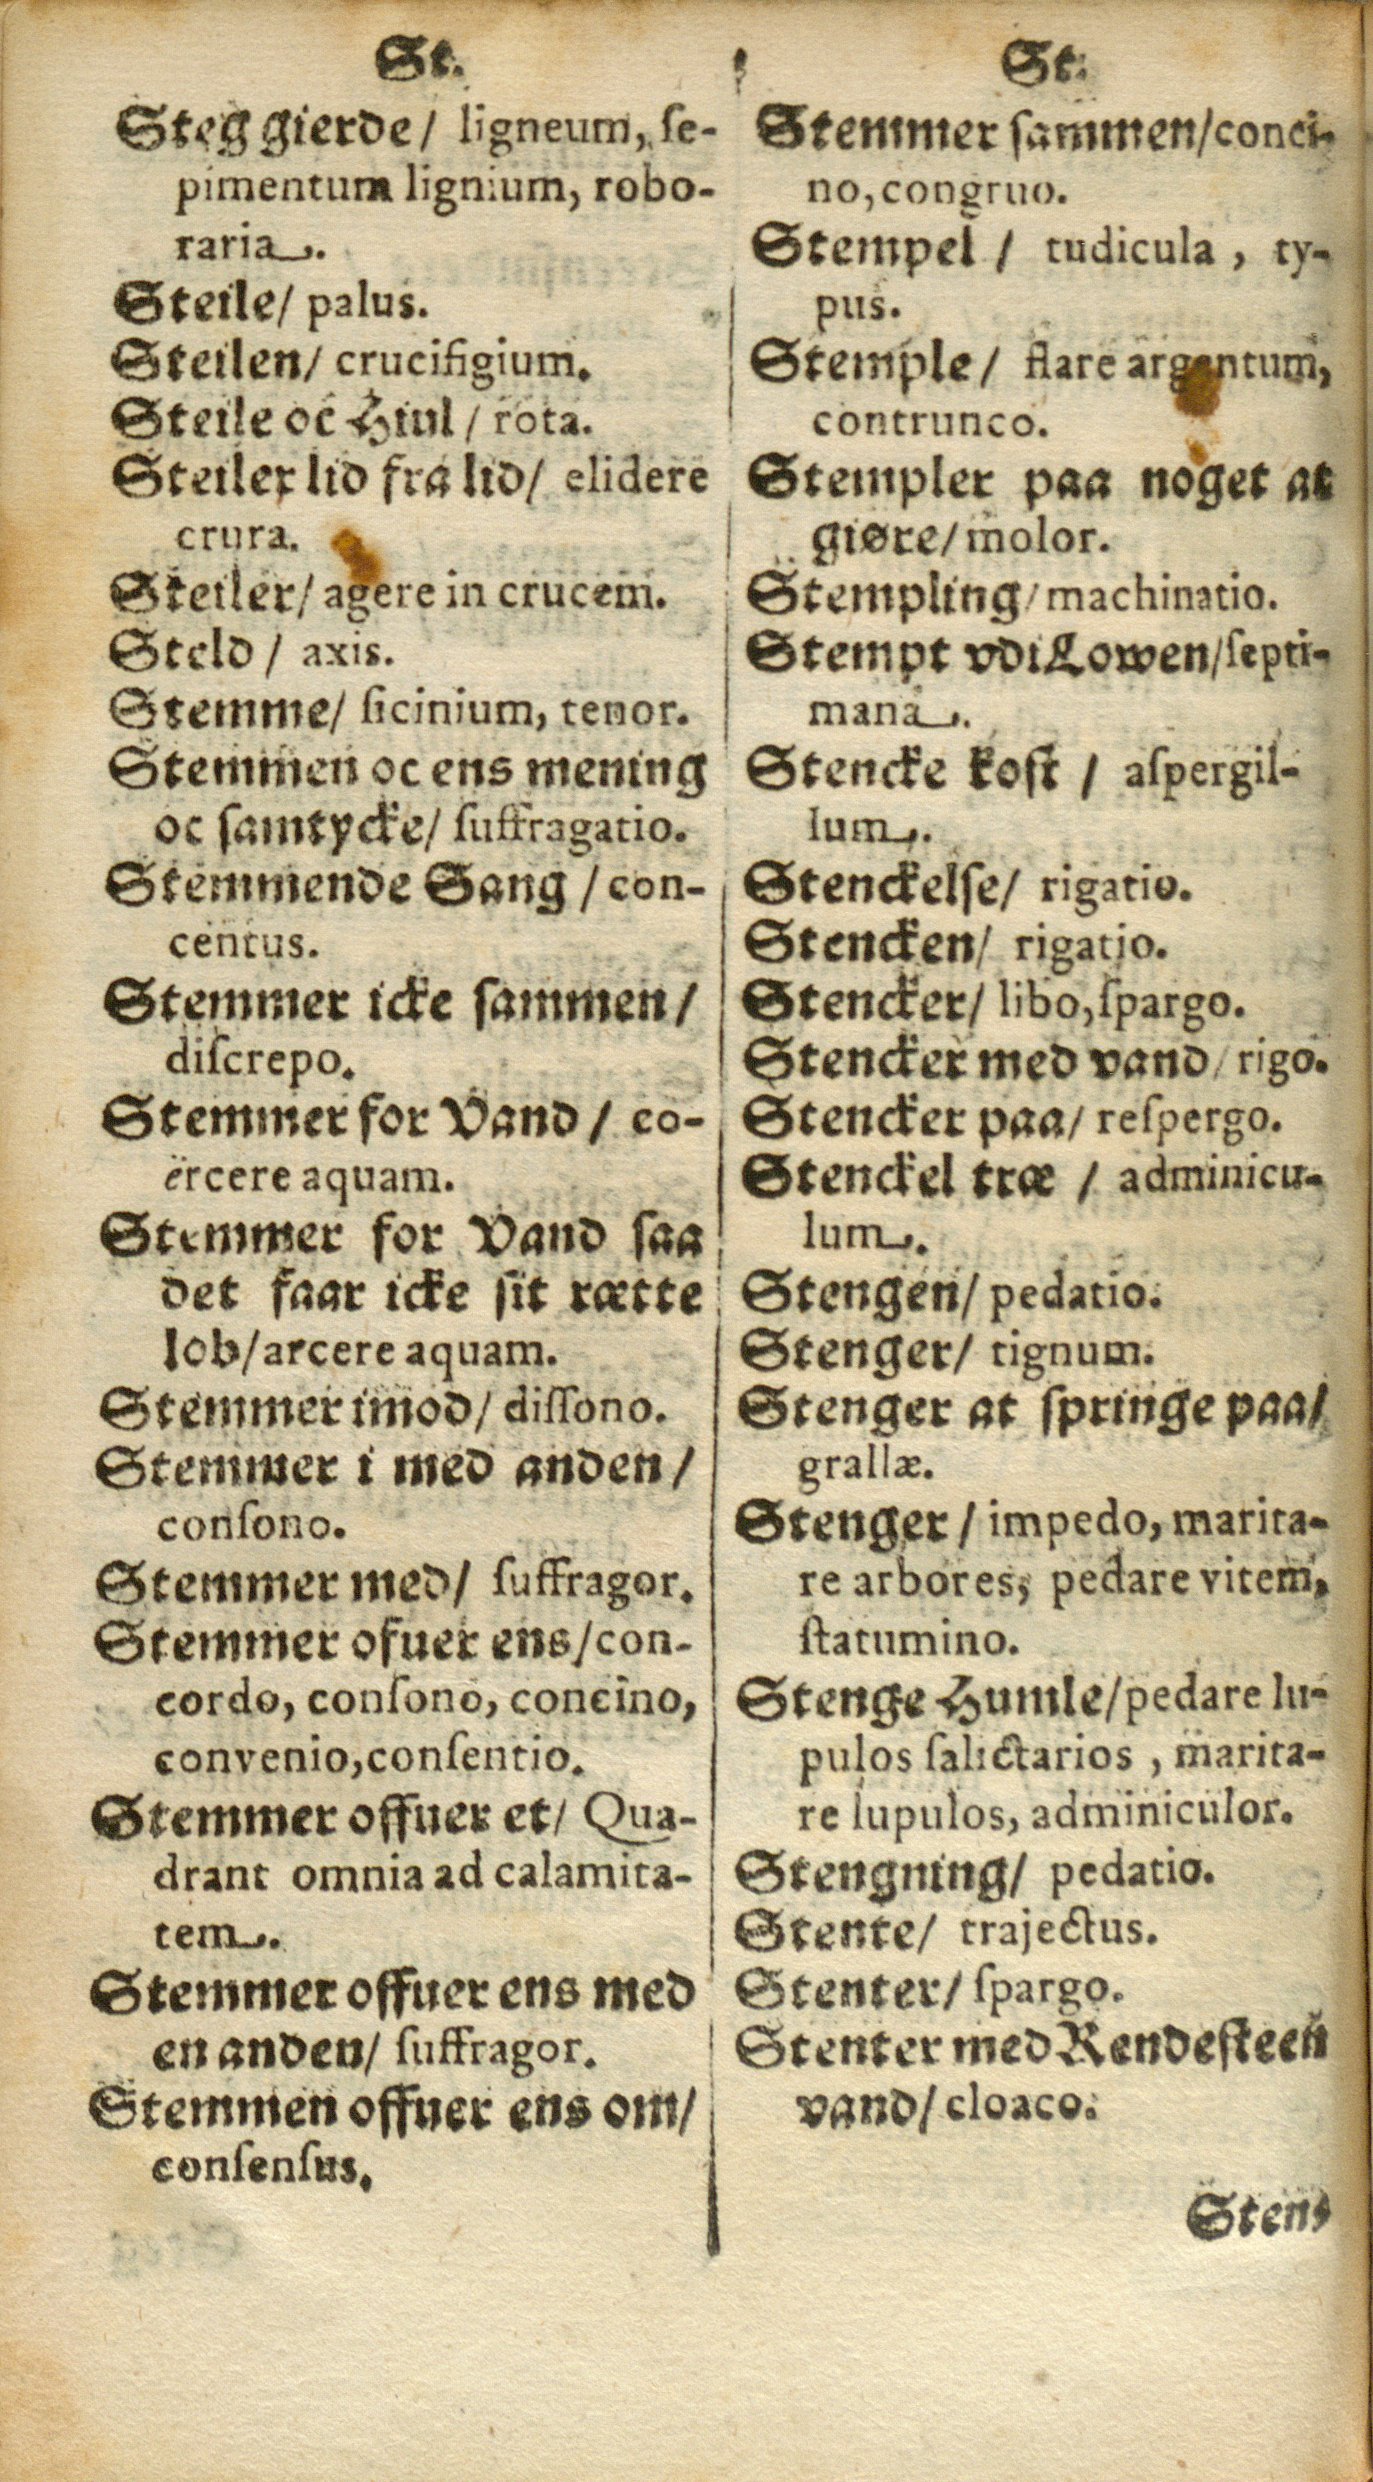 St.
Steg gierde/ ligneum, ſe-
pimentum lignium, robo-
raria.
Steile/ palus.
Steilen/ crucifigium.
Steile oc Hiul/ rota.
Steiler lid fra lid/ elidere
crura.
Steiler/ agere in crucem.
Steld/ axis.
Stemme/ ſicinium, tenor.
Stemmen oc ens mening
oc ſamtycke/ ſuffragatio.
Stemmende Sang/ con-
centus.
Stemmer icke ſammen/
diſcrepo.
Stemmer for Vand/ co-
ërcere aquam.
Stemmer for Vand ſaa
det faar icke ſit rætte
lob/ arcere aquam.
Stemmer imod/ diſſono.
Stemmer i med anden/
conſono.
Stemmer med/ ſuffragor.
Stemmer ofuer ens/ con-
cordo, conſono, concino,
convenio, conſentio.
Stemmer offuer et/ Qua-
drant omnia ad calamita-
tem.
Stemmer offuer ens med
en anden/ ſuffragor.
Stemmen offuer ens om/
conſenſus.
St.
Stemmer ſammen/ conci-
no, congruo.
Stempel/ tudicula, ty-
pus.
Stemple/ flare argentum,
contrunco.
Stempler paa noget at
giøre/ molor.
Stempling/ machinatio.
Stempt vdi Lowen/ ſepti-
mana.
Stencke koſt/ aſpergil-
lum.
Stenckelſe/ rigatio.
Stencken/ rigatio.
Stencker/ libo, ſpargo.
Stencker med vand/ rigo.
Stencker paa/ reſpergo.
Stenckel træ/ adminicu-
lum.
Stengen/ pedatio.
Stenger/ tignum.
Stenger at ſpringe paa/
grallæ.
Stenger/ impedo, marita-
re arbores, pedare vitem,
ſtatumino.
Stenge Humle/ pedare lu-
pulos ſalictarios, marita-
re lupulos, adminiculor.
Stengning/ pedatio.
Stente/ trajectus.
Stenter/ ſpargo.
Stenter med Rendeſteen
vand/ cloaco.
Stens